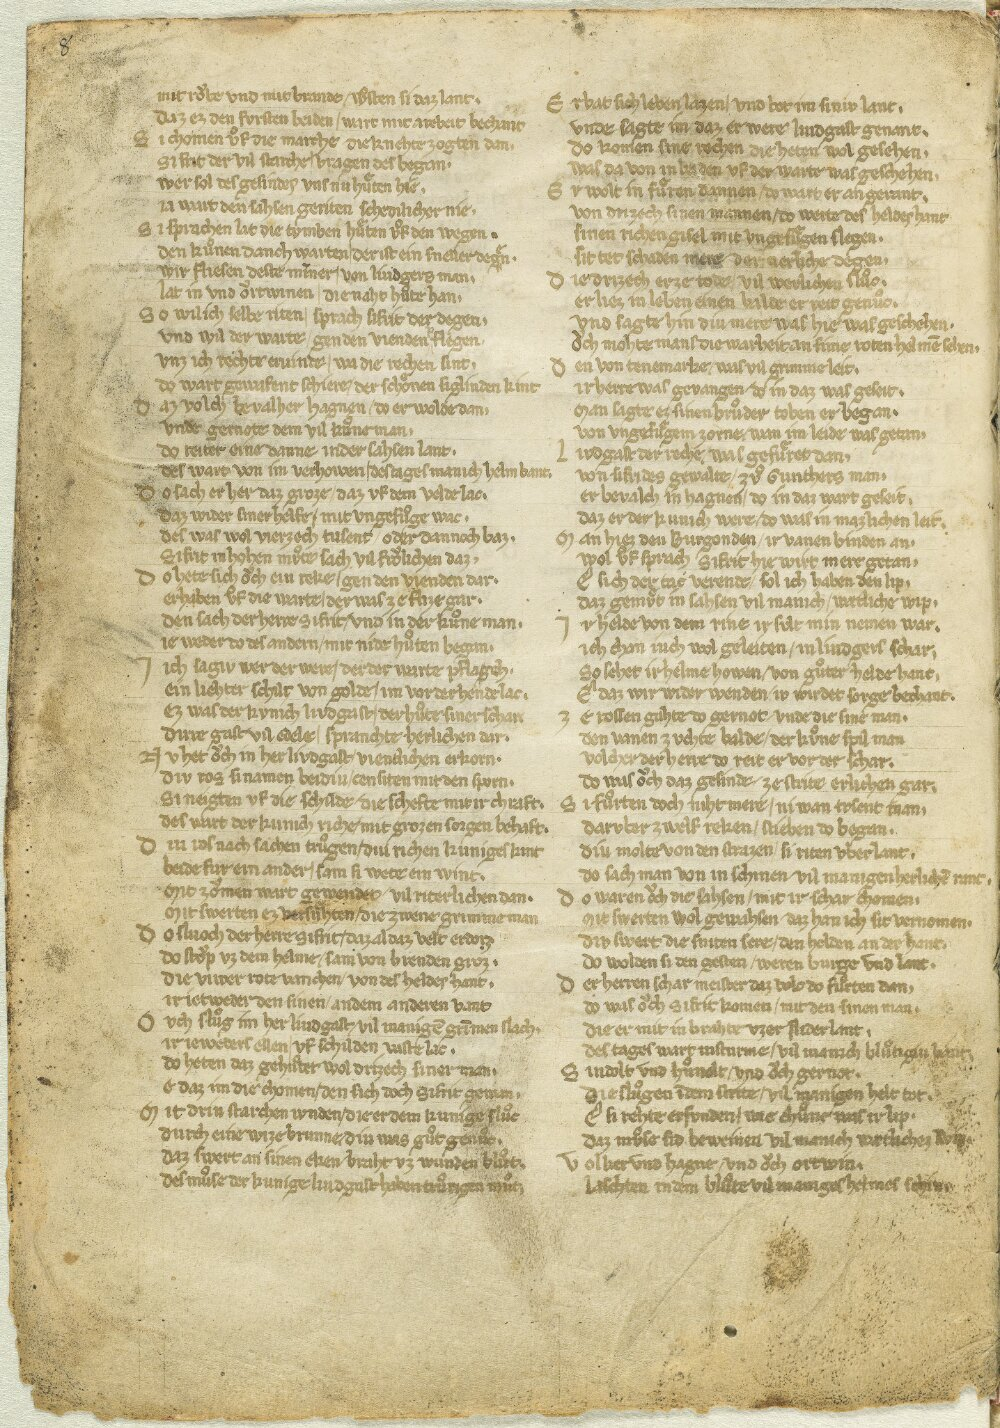 8
mit rǒbe vnd mit brande / wͦsten si daz lant.
daz ez den fvrsten beiden / wart mit arebeit bechant
S i chomen vf die marche die knehte zogten dan.
Sifrit der vil starche / vragen des began.
wer sol des gesindes vns nu hûten hie.
ia wart den sahsen geriten schedelicher nie.
S i sprachen lat die tvmben hûten vf den wegen.
den kûnen danch warten / der ist ein sneller degen.
wir fliesen deste minner / von liudgers man.
lat in vnd ortwinen / die naht hûte han.
S o wil ich selbe riten / sprach sifrit der degen.
vnd wil der warte / gen den vienden flegen.
vnz ich rehte ervinde / wa die rechen sint.
do wart gewafent schiere / der schonen siglinden kint
D az volch bevalher hagnen / do er wolde dan.
vnde gernote dem vil kûne man.
do reiter eine danne inder sahsen lant.
des wart von im verhowen / des tages manich helm bant.
D o sach er her daz groze / daz vf dem velde lac.
daz wider siner helfe / mit vngefûge wac.
des was wol vierzech tusent / oder dannoch baz.
Sifrit in hohen mûte sach vil frôlichen daz.
D o hete sich ôch ein reke / gen den vienden dar.
erhaben vf die warte / der was ze flize gar.
den sach der herre Sifrit / vnd in der kûne man.
ie weder do des andern / mit nide hûten began.
I ich sagiv wer der were / der der warte pflagch.
ein liehter schilt von golde / im vor der hende lac.
Ez was der kvnich livdgast / der hûte siner schar
dirre gast vil edele / sprancte herlichen dar.
N v het ôch in her livdgast / viendlichen erkorn.
div ros si namen beidiu / cen siten mit den sporn.
Si neigten vf die schilde / die schefte mit ir chraft.
des wart der kunich riche / mit grozen sorgen behaft.
D iu ros nach stichen trûgen / diu richen kuniges kint
beide fur ein ander / sam si wete ein wint.
Mit zômen wart gewendet / vil riterlichen dan.
Mit swerten ez versûhten / die zwene grimme man
D o sluoch der herre Sifrit / daz al daz velt erdoz
do stôp vz dem helme / sam von brenden groz.
die viwer rote vanchen / von des heldes hant.
ir ietweder den sinen / an dem anderen vant
O vch slûg im her liudgast / vil manigē grīmen slach.
ir ieweders ellen / vf schilden vaste lac.
do heten daz gehiter wol drizech siner man.
e daz im die chomen / den sich doch Sifrit gewan.
M it drin starchen wnden / die er dem kunige slûc
durch eine wize brunne / diu was gût genûc.
daz swert an sinen eken / braht vz wunden blût.
des mûse der kunige liudgast haben trûrigen mût
E r bat sich leben lazen / vnd bot im siniv lant.
vnde sagte im daz er were liudgast genant.
do komen sine rechen die heten wol gesehen.
was da von in beiden vf der warte was geschehen.
E r wolt in fûren dannen / do wart er an gerant.
von drizech sinen mannen / do werte des heldes hant
sinen richen gisel mit vngefûgen slegen.
sit tet schaden mere der zierliche degen.
D ie drizech er ze tode / vil werlichen slûc.
er liez in leben einen balde er reit genûc.
vnd sagte hin diu mere was hie was geschehen.
ôch mohte mans die warheit an sime roten helmē sehen.
D en von tenemarke / was vil grimme leit.
ir herre was gevangen / do in daz was geseit.
Man sagte ez sinen brûder toben er began.
von vngefûgem zorne / wan im leide was getan.
L ivdgast der reche was gefûret dan.
von sifrides gewalte / zv Gunthers man.
er bevalch in hagnen / do in daz wart geseit.
daz er der kunich were / do was in mazlichen leit.
M an hiez den Burgonden / ir vanen binden an.
wol vf sprach Sifrit hie wirt mere getan.
E sich der tac verende / sol ich haben den lip.
daz gemût in sahsen vil manich / wætliche wip.
I r helde von dem rine ir sult min nemen war.
ich chan iuch wol geleiten / in liudgers schar.
So sehet ir helme howen / von gûter helde hant.
E daz wir wider wenden / iv wirdet sorge bechant.
Z e rossen gahte do gernot vnde die sine man.
den vanen zvchte balde / der kûne spil man
volcher der herre do reit er vor der schar.
do was ôch daz gesinde / ze strite erlichen gar.
S i fûrten doch niht mere / ni wan tvsent man.
darvber zwelf reken / stieben do began.
diu molte von den strazen / si riten vber lant.
do sach man von in schinen vil manigen herlichē rant.
D o waren ôch die sahsen / mit ir schar chomen.
Mit swerten wol gewahsen daz han ich sit vernomen.
div swert die sniten sere / den helden an der hant.
do wolden si den gesten / weren burge vnd lant.
D er herren schar meister daz volc do fûrten dan.
do was ôch Sifrit komen / mit den sinen man.
die er mit in brahte vzer niderlant.
des tages wart in sturme / vil manich blûtigiu hant.
S indolt vnd hûnolt / vnd ôch gernot.
die slûgen indem strite / vil manigen helt tot.
E si rehte erfunden / wie chûne was ir lip.
daz mûse sid beweinen vil manich wætlichez wip.
V olker vnd hagne / vnd ôch ortwin.
laschten indem blûte vil maniges helmes schin.